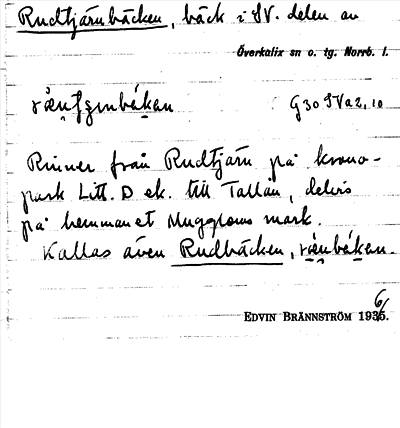 Rudtjärnbäcken, bäck i SV. delen av
Överkalix sn o. tg. Norrb. l.
G 30 SVa2, 10
Rinner från Rudtjärn på krono-
park Litt. D ek. till Tallån, delvis
på hemmanet Muggloms mark.
Kallas även Rudbäcken,
EDVIN BRÄNNSTRÖM 1936.